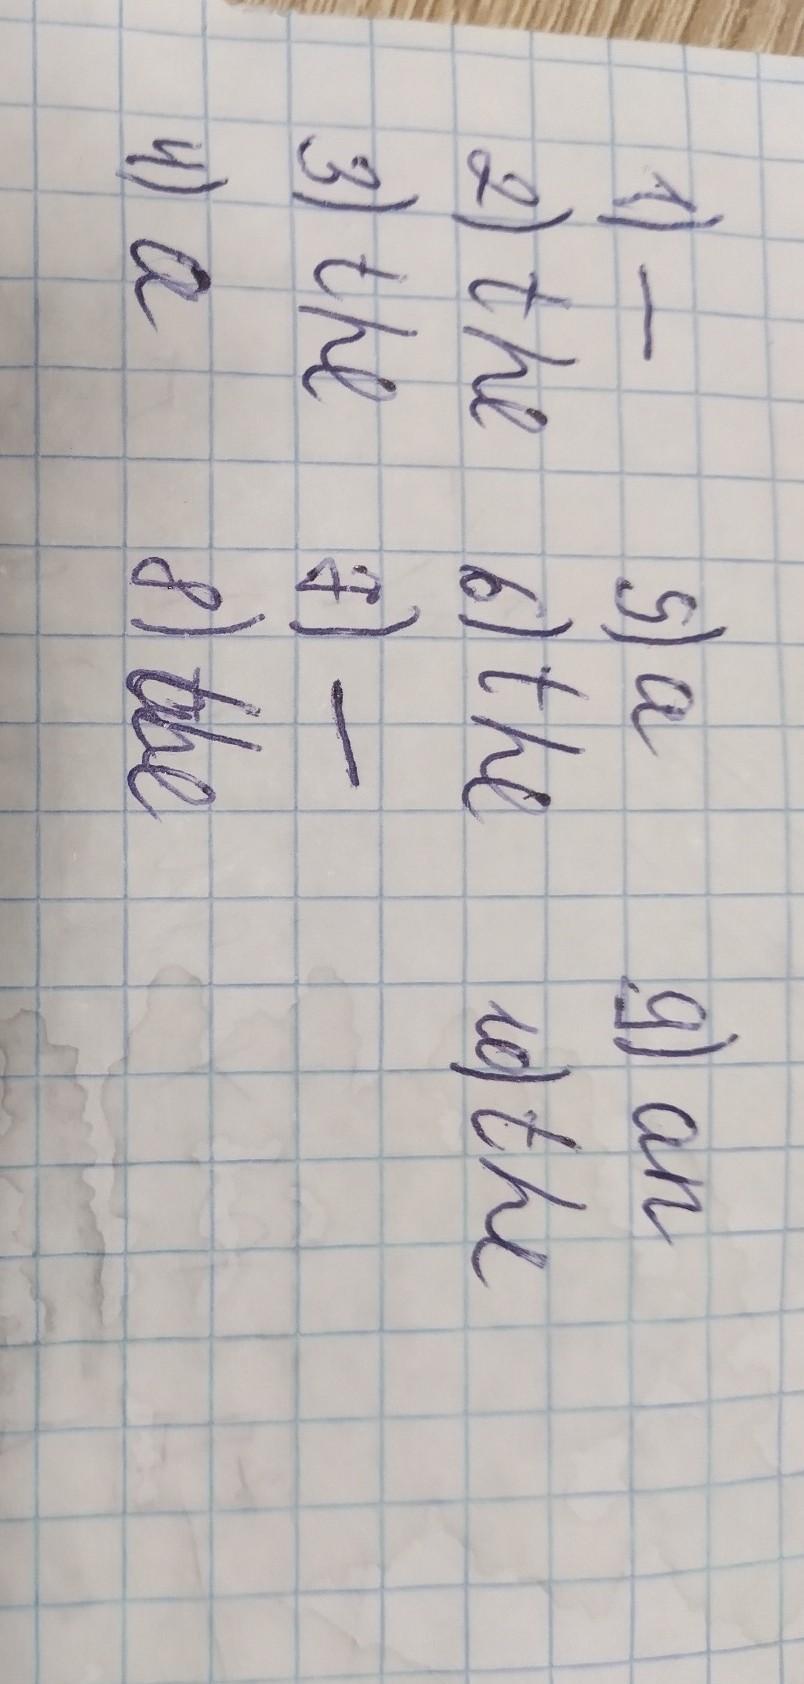 1) — 5) a 9) an
2) the 6) the 10) the
3) the 7) —
4) a 8) the